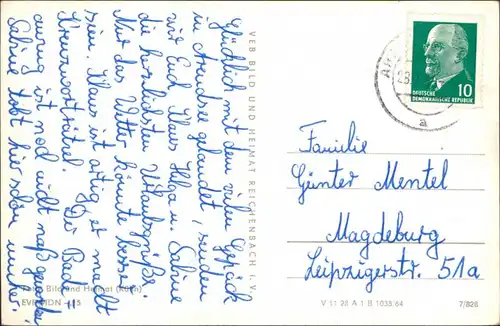 Glücklich mit dem vielen Gepäck
in Arendsee gelandet, senden
wir Euch, Klaus Helga u. Sabine
die herzlichsten Urlaubsgrüße.
Nur das Wetter könnte besser
sein. Klaus ist artig, er malt
Kreuzworträtsel. Die Bad=
anzug ist noch nicht naß geworden
Sabine tobt hier schon umher.
VEB BILD UND HEIMAT REICHENBACH i. V.
Foto: Bild und Heimat
10
DEUTSCHE
DEMOKRATISCHE REPUBLIK
a
Familie
Günter Mentel
Magdeburg
Leipzigerstr. 51a
V 11 28 A 1 B 1033/64
7/828